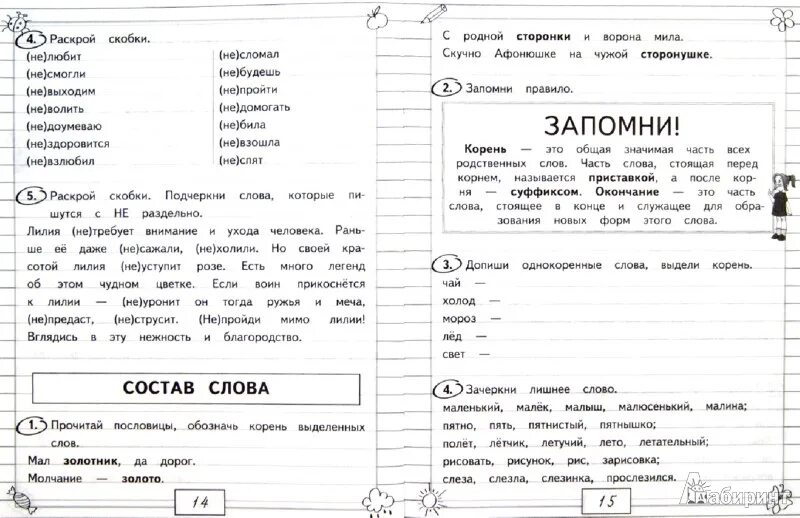 4. Раскрой скобки.
(не)любит
(не)смогли
(не)выходим
(не)волить
(не)доумеваю
(не)здоровится
(не)взлюбил
(не)сломал
(не)будешь
(не)пройти
(не)домогать
(не)била
(не)взошла
(не)спят
5. Раскрой скобки. Подчеркни слова, которые пи-
шутся с НЕ раздельно.
Лилия (не)требует внимание и ухода человека. Рань-
ше её даже (не)сажали, (не)холили. Но своей кра-
сотой лилия (не)уступит розе. Есть много легенд
об этом чудном цветке. Если воин прикоснётся
к лилии — (не)уронит он тогда ружья и меча,
(не)предаст, (не)струсит. (Не)пройди мимо лилии!
Вглядись в эту нежность и благородство.
СОСТАВ СЛОВА
1. Прочитай пословицы, обозначь корень выделенных
слов.
Мал золотник, да дорог.
Молчание — золото.
14
С родной сторонки и ворона мила.
Скучно Афонюшке на чужой сторонушке.
2. Запомни правило.
ЗАПОМНИ!
Корень — это общая значимая часть всех
родственных слов. Часть слова, стоящая перед
корнем, называется приставкой, а после кор-
ня — суффиксом. Окончание — это часть
слова, стоящее в конце и служащее для обра-
зования новых форм этого слова.
3. Допиши однокоренные слова, выдели корень.
чай —
холод —
мороз —
лёд —
свет —
4. Зачеркни лишнее слово.
маленький, малёк, малыш, малюсенький, малина;
пятно, пять, пятнистый, пятнышко;
полёт, лётчик, летучий, лето, летательный;
рисовать, рисунок, рис, зарисовка;
слеза, слезла, слезинка, прослезился.
15
Лабиринт